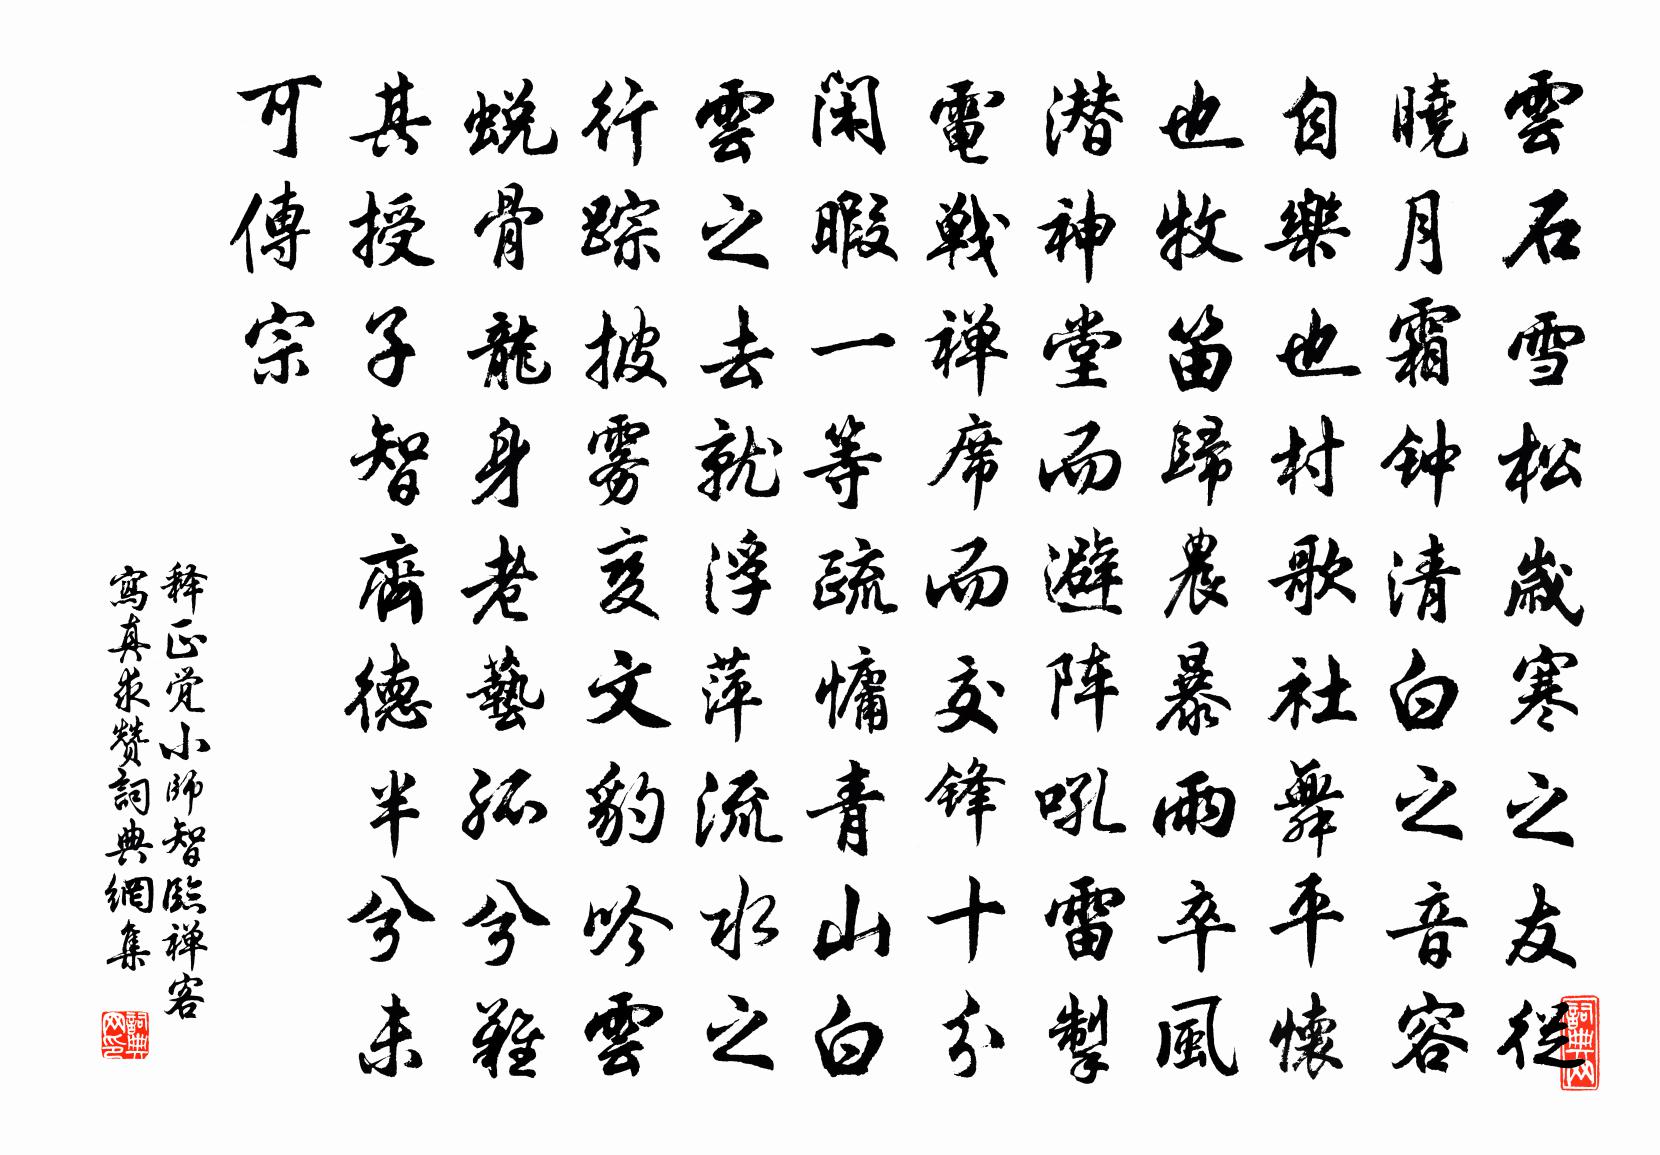 雲石雪松歲寒之友從
曉月霜钟清白之音容
自樂也村歌社舞平懷
也牧笛歸農暴雨卒風
潜神堂而避阵吼雷掣
電戦禅席而交锋十分
閑暇一等疏慵青山白
雲之去就浮萍流水之
行踪披雾变文豹吟雲
蜕骨龍身老藝孤兮難
其授子智齊德半兮未
可傳宗
释正觉小師智臨禅客
寫真求赞詞典網集
詞典网
詞典网